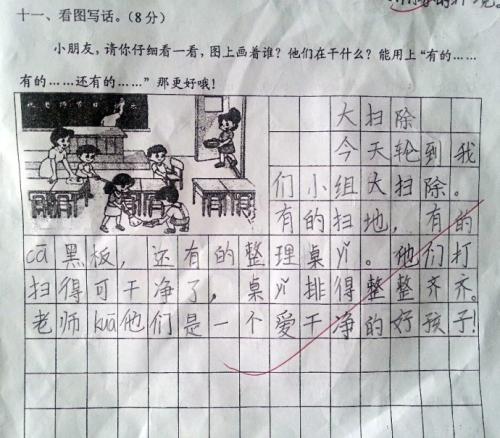 十一、看图写话。(8分)
小朋友,请你仔细看一看,图上画着谁?他们在干什么?能用上“有的……
有的……还有的……”那更好哦!
大扫除
今天轮到我
们小组大扫除。
有的扫地,有的
cā黑板,还有的整理桌yǐ。他们打
扫得可干净了,桌yǐ排得整整齐齐。
老师kuā他们是一个爱干净的好孩子!